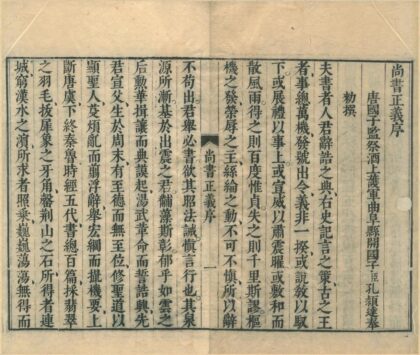 尚書正義序
唐國子監祭酒上護軍曲阜縣開國子臣孔穎達奉
勑撰
夫書者人君辭誥之典右史記言之策古之王
者事總萬機發號出令義非一揆或設教以馭
下或展禮以事上或宣威以肅震曜或敷和而
散風雨得之則百度惟貞失之則千里斯謬樞
機之發榮辱之主絲綸之動不可不慎所以辭
尚書正義序 一
不苟出君舉必書欲其昭法誡慎言行也其泉
源所漸基於出震之君黼藻斯彰郁乎如雲之
后勳華揖讓而典謨起湯武革命而誓誥興先
君宣父生於周末有至德而無至位修聖道以
顯聖人芟煩亂而翦浮辭舉宏綱而撮機要上
斷唐虞下終秦魯時經五代書總百篇採翡翠
之羽毛拔犀象之牙角罄荊山之石所得者連
城窮漢水之濱所求者照乘巍巍蕩蕩無得而